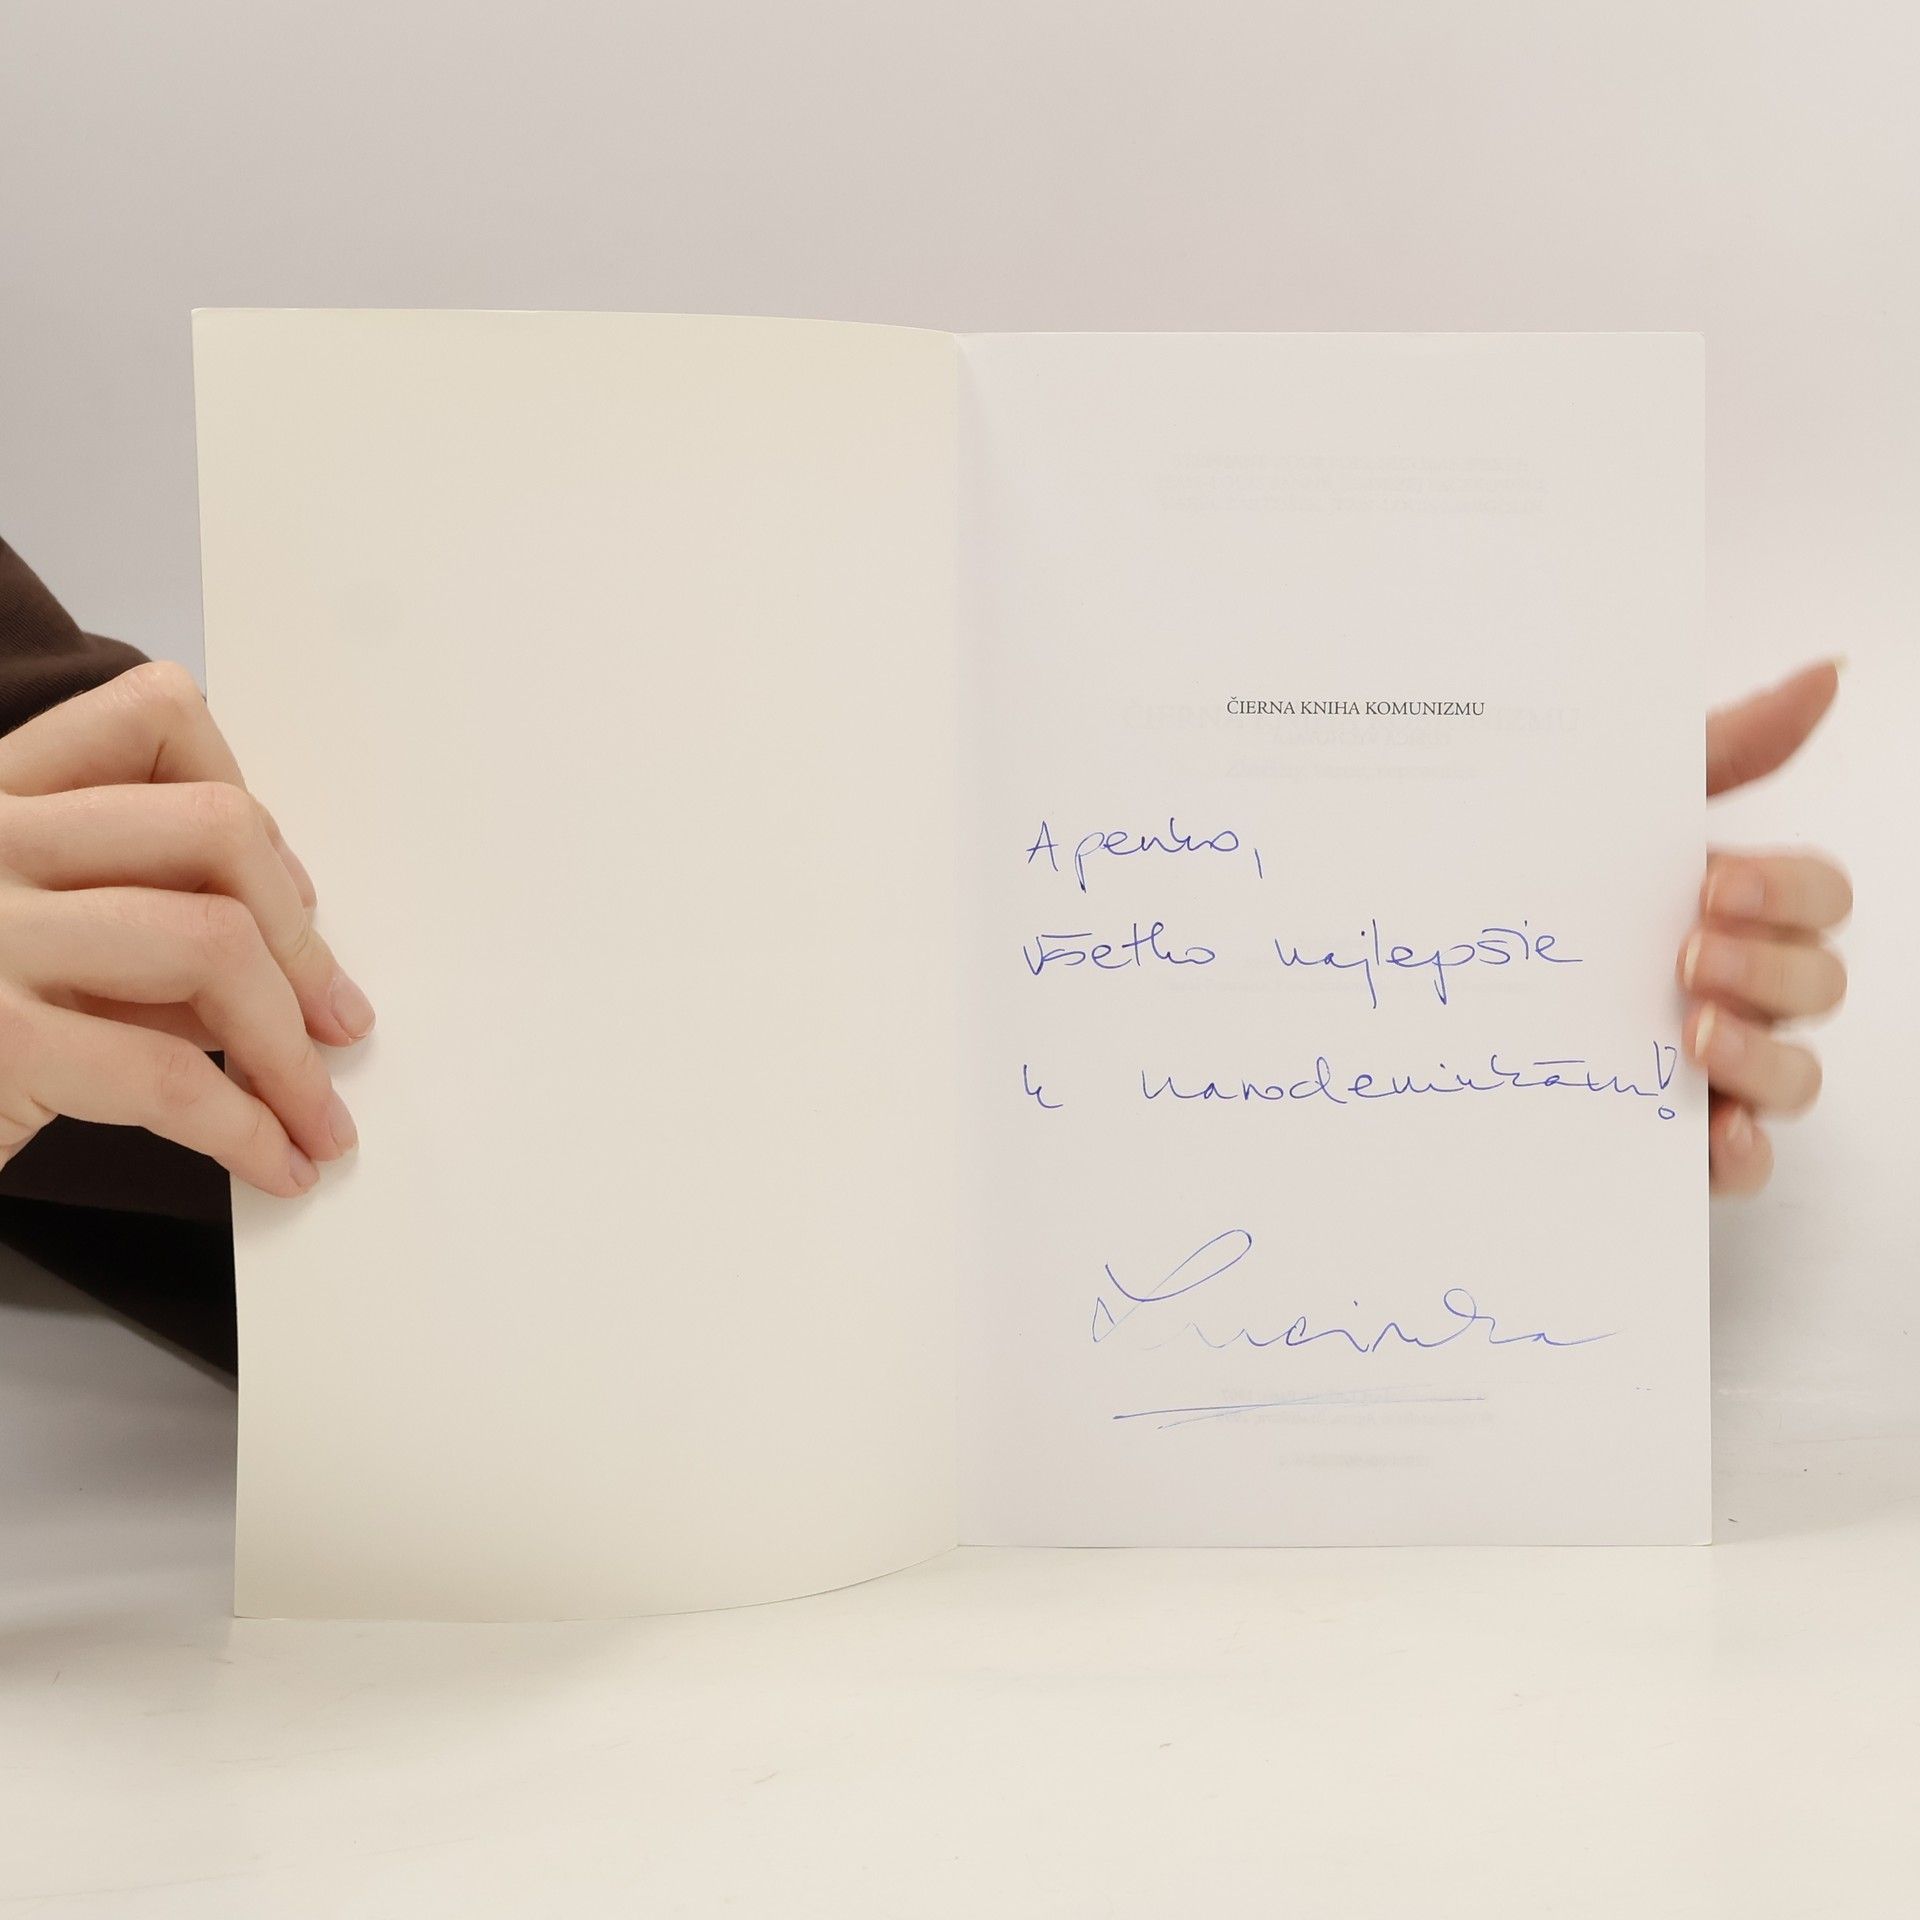 ČIERNA KNIHA KOMUNIZMU
Apenko,
všetko najlepšie
k narodeninkám!
Lucinka